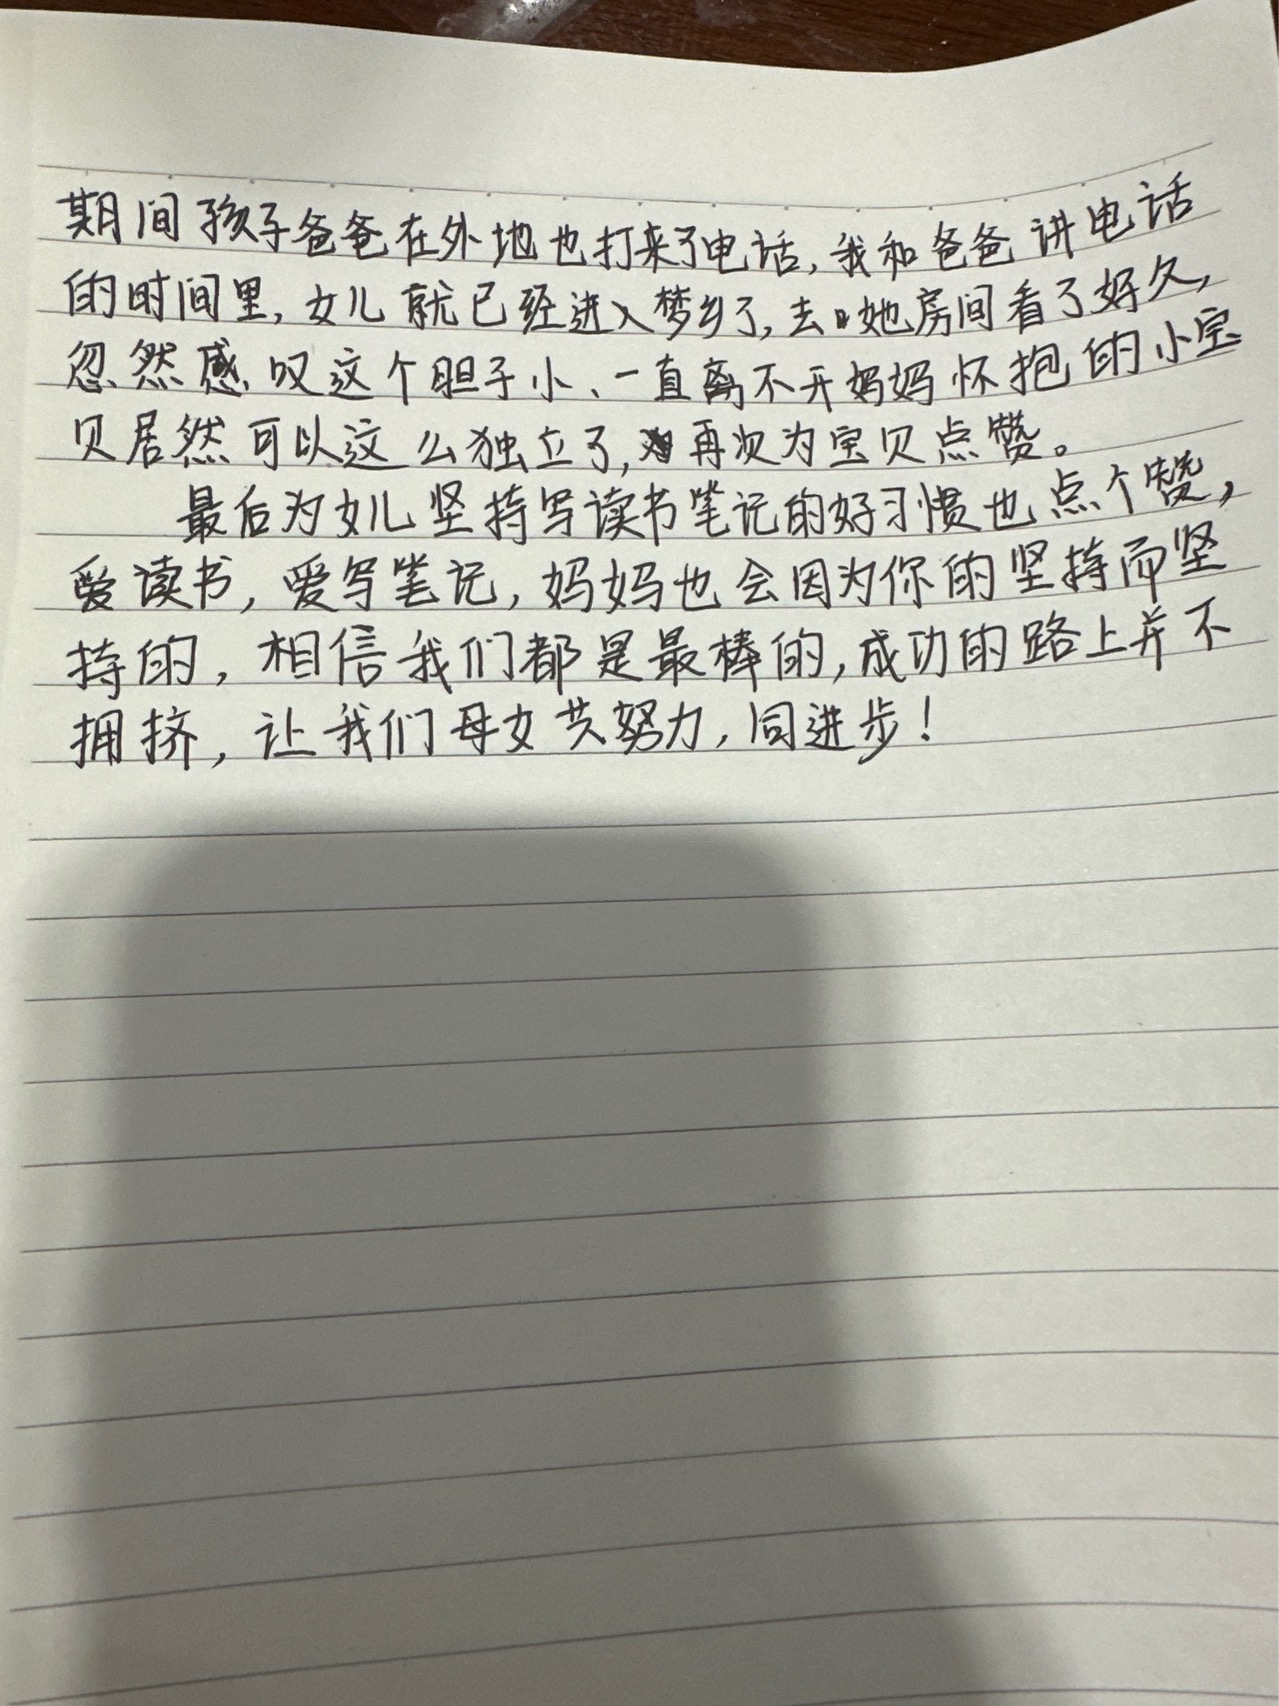 期间孩子爸爸在外地也打来了电话,我和爸爸讲电话
的时间里,女儿就已经进入梦乡了,去她房间看了好久,
忽然感叹这个胆子小、一直离不开妈妈怀抱的小宝
贝居然可以这么独立了,再次为宝贝点赞。
最后为女儿坚持写读书笔记的好习惯也点个赞,
爱读书,爱写笔记,妈妈也会因为你的坚持而坚
持的,相信我们都是最棒的,成功的路上并不
拥挤,让我们母女共努力,同进步!